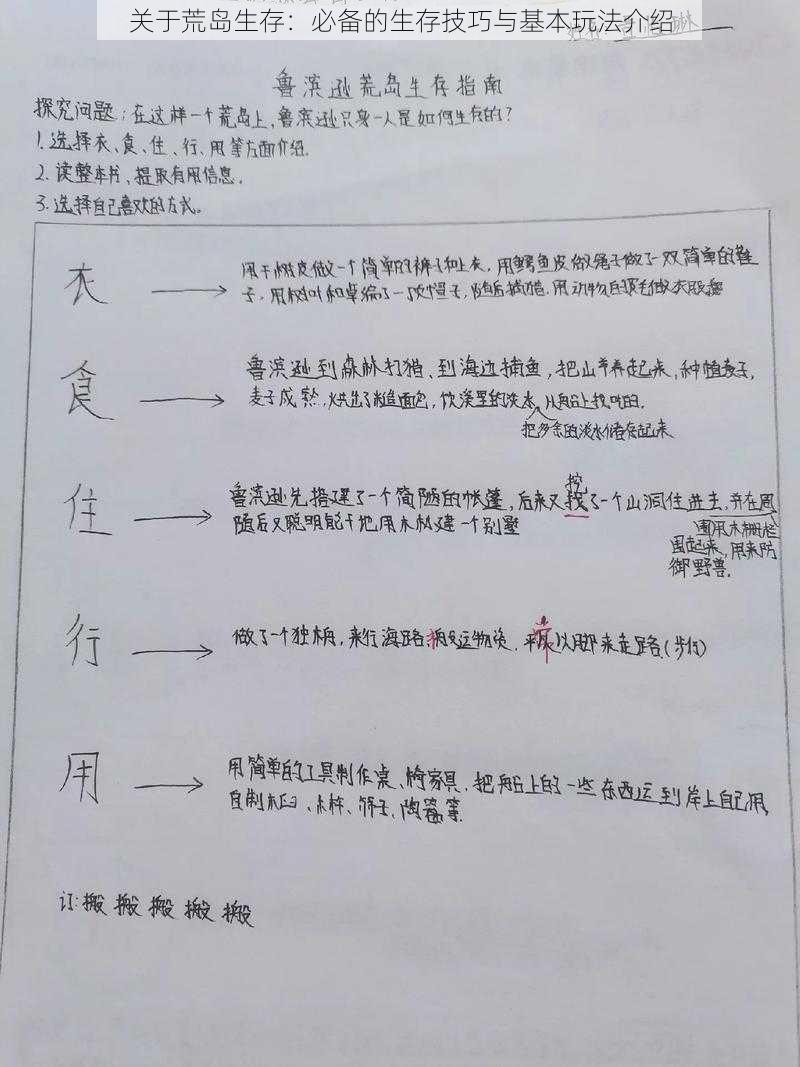 关于荒岛生存：必备的生存技巧与基本玩法介绍
鲁滨逊荒岛生存指南
探究问题：在这样一个荒岛上，鲁滨逊只身一人是如何生存的？
1.选择衣、食、住、行、用等方面介绍.
2.读整本书，提取有用信息。
3.选择自己喜欢的方式。
衣
用干树皮做一个简单的裤子和上衣，用鳄鱼皮做绳子做了一双简单的鞋
子，用树叶和草编了一顶帽子，随后捕猎.用动物皮毛做衣服
食
鲁滨逊到森林打猎、到海边捕鱼，把山羊养起来，种植麦子，
麦子成熟，烘出了粗面包，饮溪里的淡水，从船上找吃的.
把多余的淡水储存起来
住
鲁滨逊先搭建了一个简陋的帐篷，后来又找了一个山洞住进去，并在周
挖
随后又聪明能干地用木材建一个别墅
围用木栅栏
围起来，用来防
御野兽.
行
做了一个独木舟，来行海路 运物资.平常以用脚来走路(步行)
用
用简单的工具制作桌、椅家具，把船上的一些东西运到岸上自己用，
自制木臼、木杵、筛子、陶器等.
订:搬 搬 搬 搬 搬